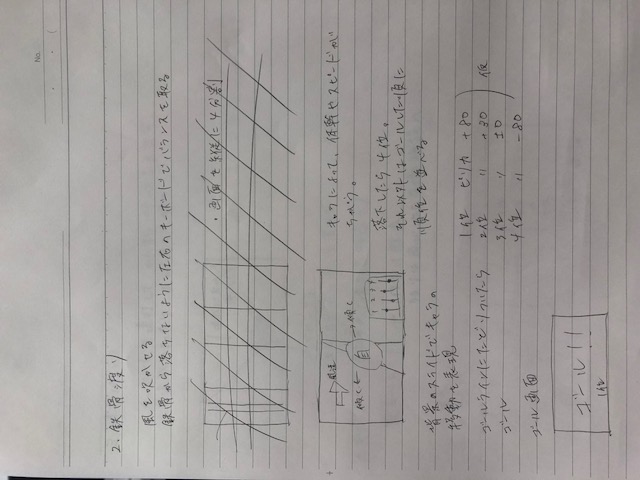 No.
2. 鉄骨渡り
風を吹かせる
鉄骨から落ちないように左右のキーボードでバランスを取る
・画面を縦に4分割
風速
傾く← 自 →傾く
1 2 3 4
キャラによって、体幹やスピードが
ちがう。
落下したら4位。
それ以外はゴールした順に
順位を並べる
背景のスライドでキャラの
移動を表現
ゴールラインにたどりついたら
ゴール
1位 ピリカ +80
2位 〃 +30
3位 〃 ±0
4位 〃 -80
仮
ゴール画面
ゴール!!
1位